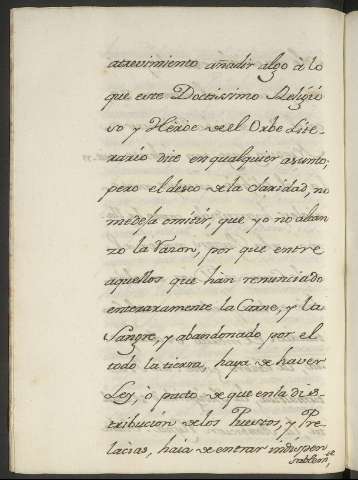 atrevimiento añadir algo à lo
que este Doctissimo Religio
so y Héroe de el Orbe Lite-
rario dice en qualquier asunto;
pero el deseo de la Claridad, no
me deja omitir, que yo no alcan
zo la razon, por que entre
aquellos que hàn renunciado
enteraramente la Carne, y la
Sangre, y abandonado por el
todo la tierra, haya de haver
Ley, ò pacto de que en la dis-
tribución de los Puestos, y Pre
lacias, haia de entrar indispen
sablem.te